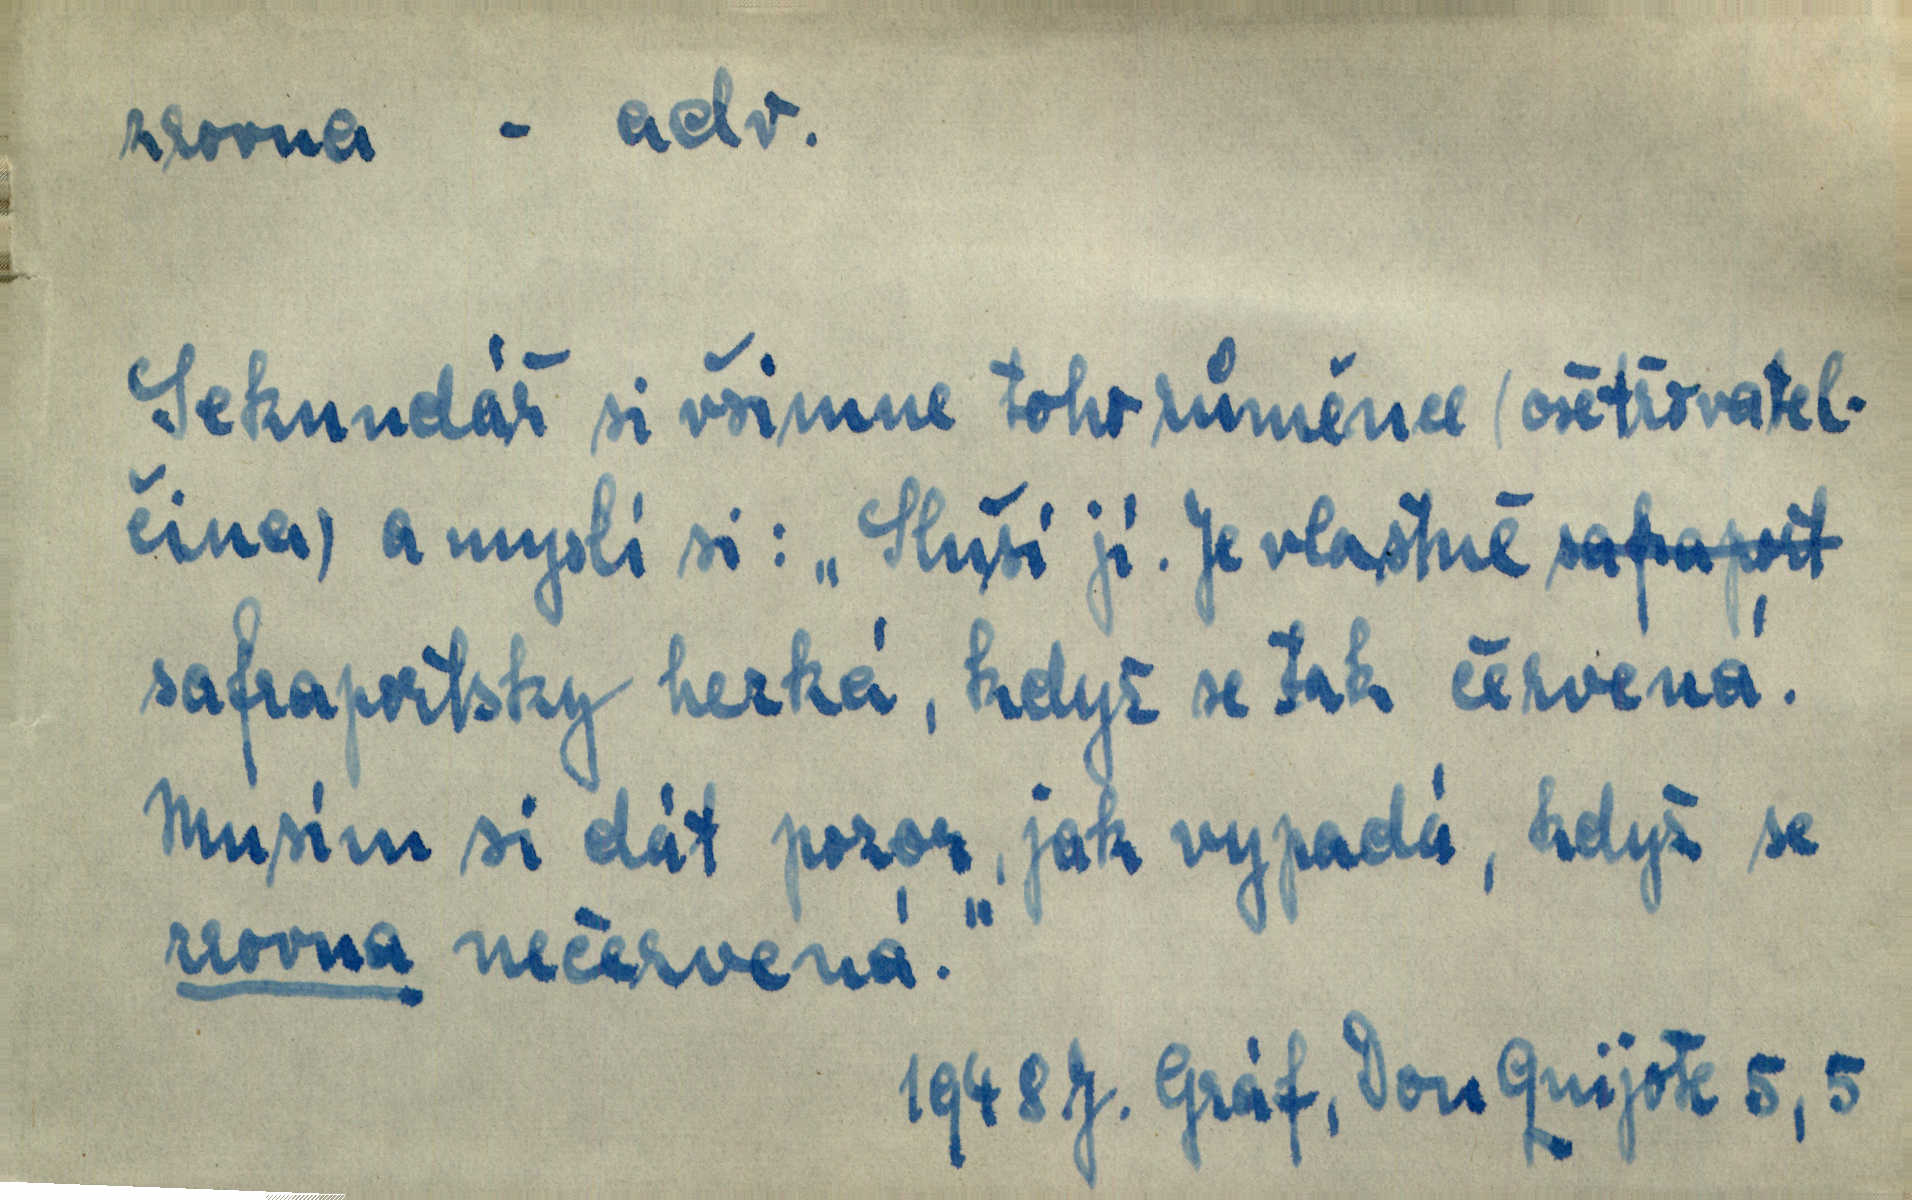 zrovna - adv.
Sekundář si všimne toho ruměnce (ošetřovatel-
čina) a myslí si: „Sluší jí. Je vlastně safraport
safraportsky herká, když se tak červená.
Musím si dát pozor, jak vypadá, když se
zrovna nečervená."
1948 J. Gráf, Don Quijote 5, 5